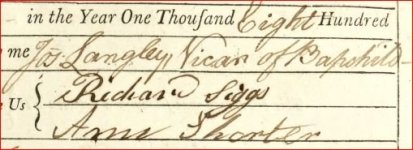 in the Year One Thousand Eight Hundred
me Jos Langley Vicar of Bapchild
Us { Richard Siggs
Ann Shorter